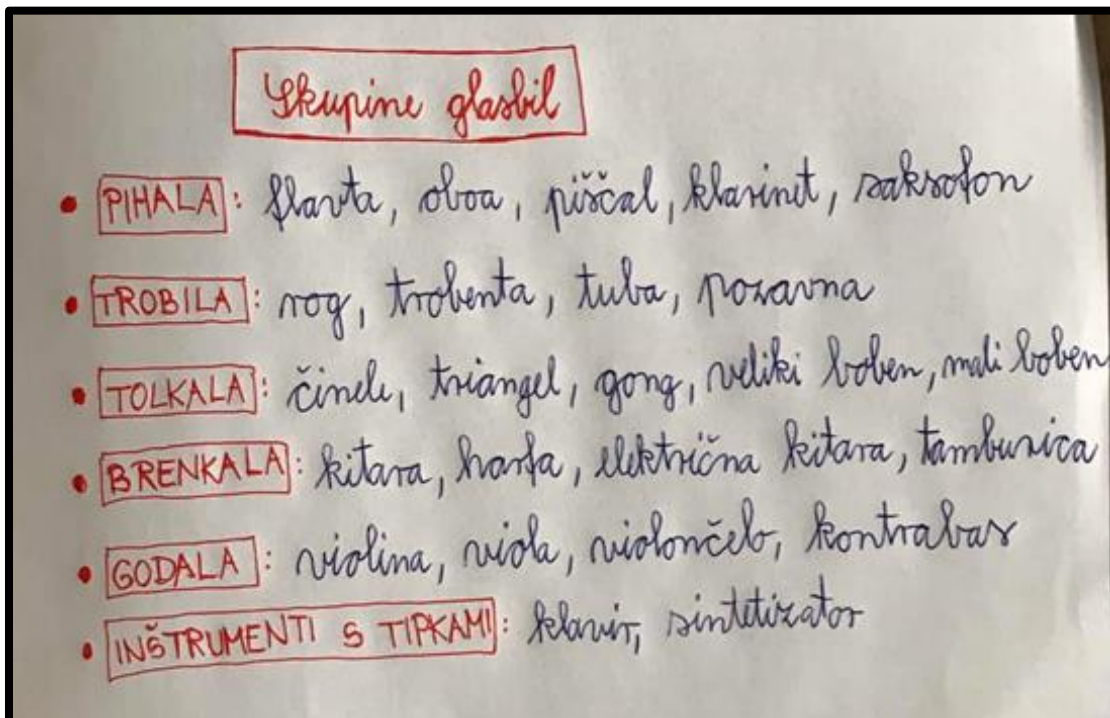 Skupine glasbil
• PIHALA: flavta, oboa, piščal, klarinet, saksofon
• TROBILA: rog, trobenta, tuba, pozavna
• TOLKALA: činele, triangel, gong, veliki boben, mali boben
• BRENKALA: kitara, harfa, električna kitara, tamburica
• GODALA: violina, viola, violončelo, kontrabas
• INŠTRUMENTI S TIPKAMI: klavir, sintetizator